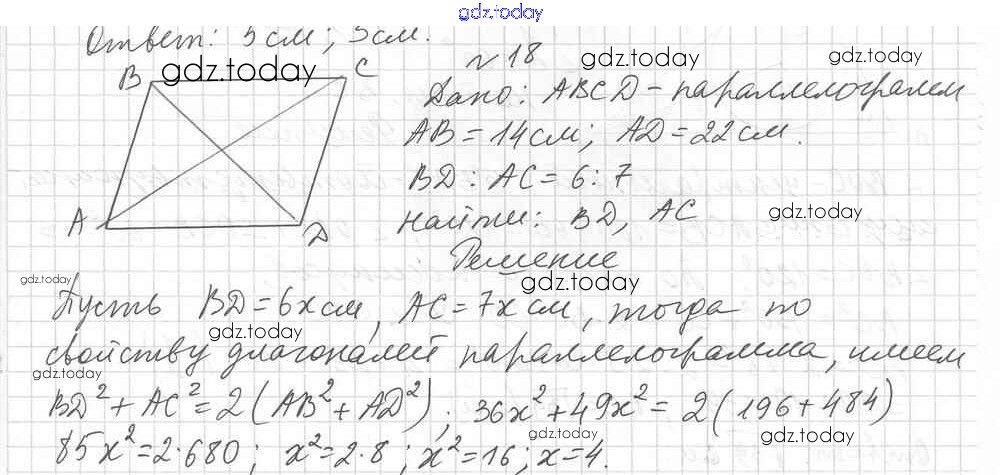 gdz.today
Ответ: 5 см ; 5 см.
№ 18
gdz.today
gdz.today
B
gdz.today
C
Дано: ABCD - параллелограмм
AB = 14 см; AD = 22 см.
BD : AC = 6 : 7
A
D
Найти: BD, AC
gdz.today
Решение
gdz.today
gdz.today
Пусть BD = 6x см, AC = 7x см, тогда по
gdz.today
свойству диагоналей параллелограмма, имеем
gdz.today
BD² + AC² = 2 (AB² + AD²) ; 36x² + 49x² = 2 (196 + 484)
85x² = 2·680 ; x² = 2·8 ; x² = 16 ; x = 4.
gdz.today
gdz.today